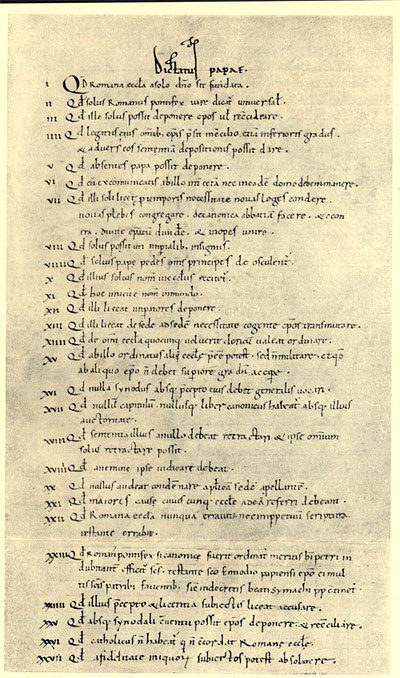 Dictatus papae.
I Qd Romana eccla a solo dno sit fundata.
II Qd solus Romanus pontifex iure dicat universal.
III Qd ille solus possit deponere epos ul reciliare.
IIII Qd legatus eius omib epis psit in cilio etiā inferioris gradus.
& adversus eos sententiā depositionis possit dare.
V Qd absentes papa possit deponere.
VI Qd cū excommunicatis ab illo int cetera nec in eadē domo debem manere.
VII Qd illi soli licet p temporis necessitate novas leges condere.
novas plebes congregare. de canonica abbatiam facere. & e con
tra. divite epatū divide. & inopes unire.
VIII Qd solus possit uti impialib insigniis.
VIIII Qd solius pape pedes oms principes deosculent.
X Qd illius solius nom in ecclis recitet.
XI Qd hoc unicū ē nom in mundo.
XII Qd illi liceat impatores deponere.
XIII Qd illi liceat de sede ad sedē necessitate cogente epos transmutare.
XIIII Qd de omi eccla quocunq voluerit clericū valeat ordinare.
XV Qd ab illo ordinatus alii eccle pēe potest. sed n militare. et qd
ab aliquo epo n debet supiore gradū accipe.
XVI Qd nulla synodus absq pcepto eius debet generalis vocari.
XVII Qd nullū capitulū nullusq liber canonicus habeat absq illius
auctoritate.
XVIII Qd sententia illius a nullo debeat retractari & ipse omium
solus retractare possit.
XVIIII Qd a nemine ipse iudicari debeat.
XX Qd nullus audeat condēnare aplicā sedē apellante.
XXI Qd maiores cause cuiuscunq eccle ad eā referri debeant.
XXII Qd Romana eccla nunquā erravit nec inppetuū scriptura
testante errabit.
XXIII Qd Roman pontifex si canonice fuerit ordinat meritis b petri in
dubitant effict scs. testante sco Ennodio papiensi epo ei mul
tis scis patrib faventib sic in decretis beati symachi pp cinet.
XXIIII Qd illius pcepto & licentia subiectis liceat accusare.
XXV Qd absq synodali cventu possit epos deponere & reciliare.
XXVI Qd catholicus n habeat q n ccordat Romane eccle.
XXVII Qd a fidelitate iniquor subiectos potest absolvere.